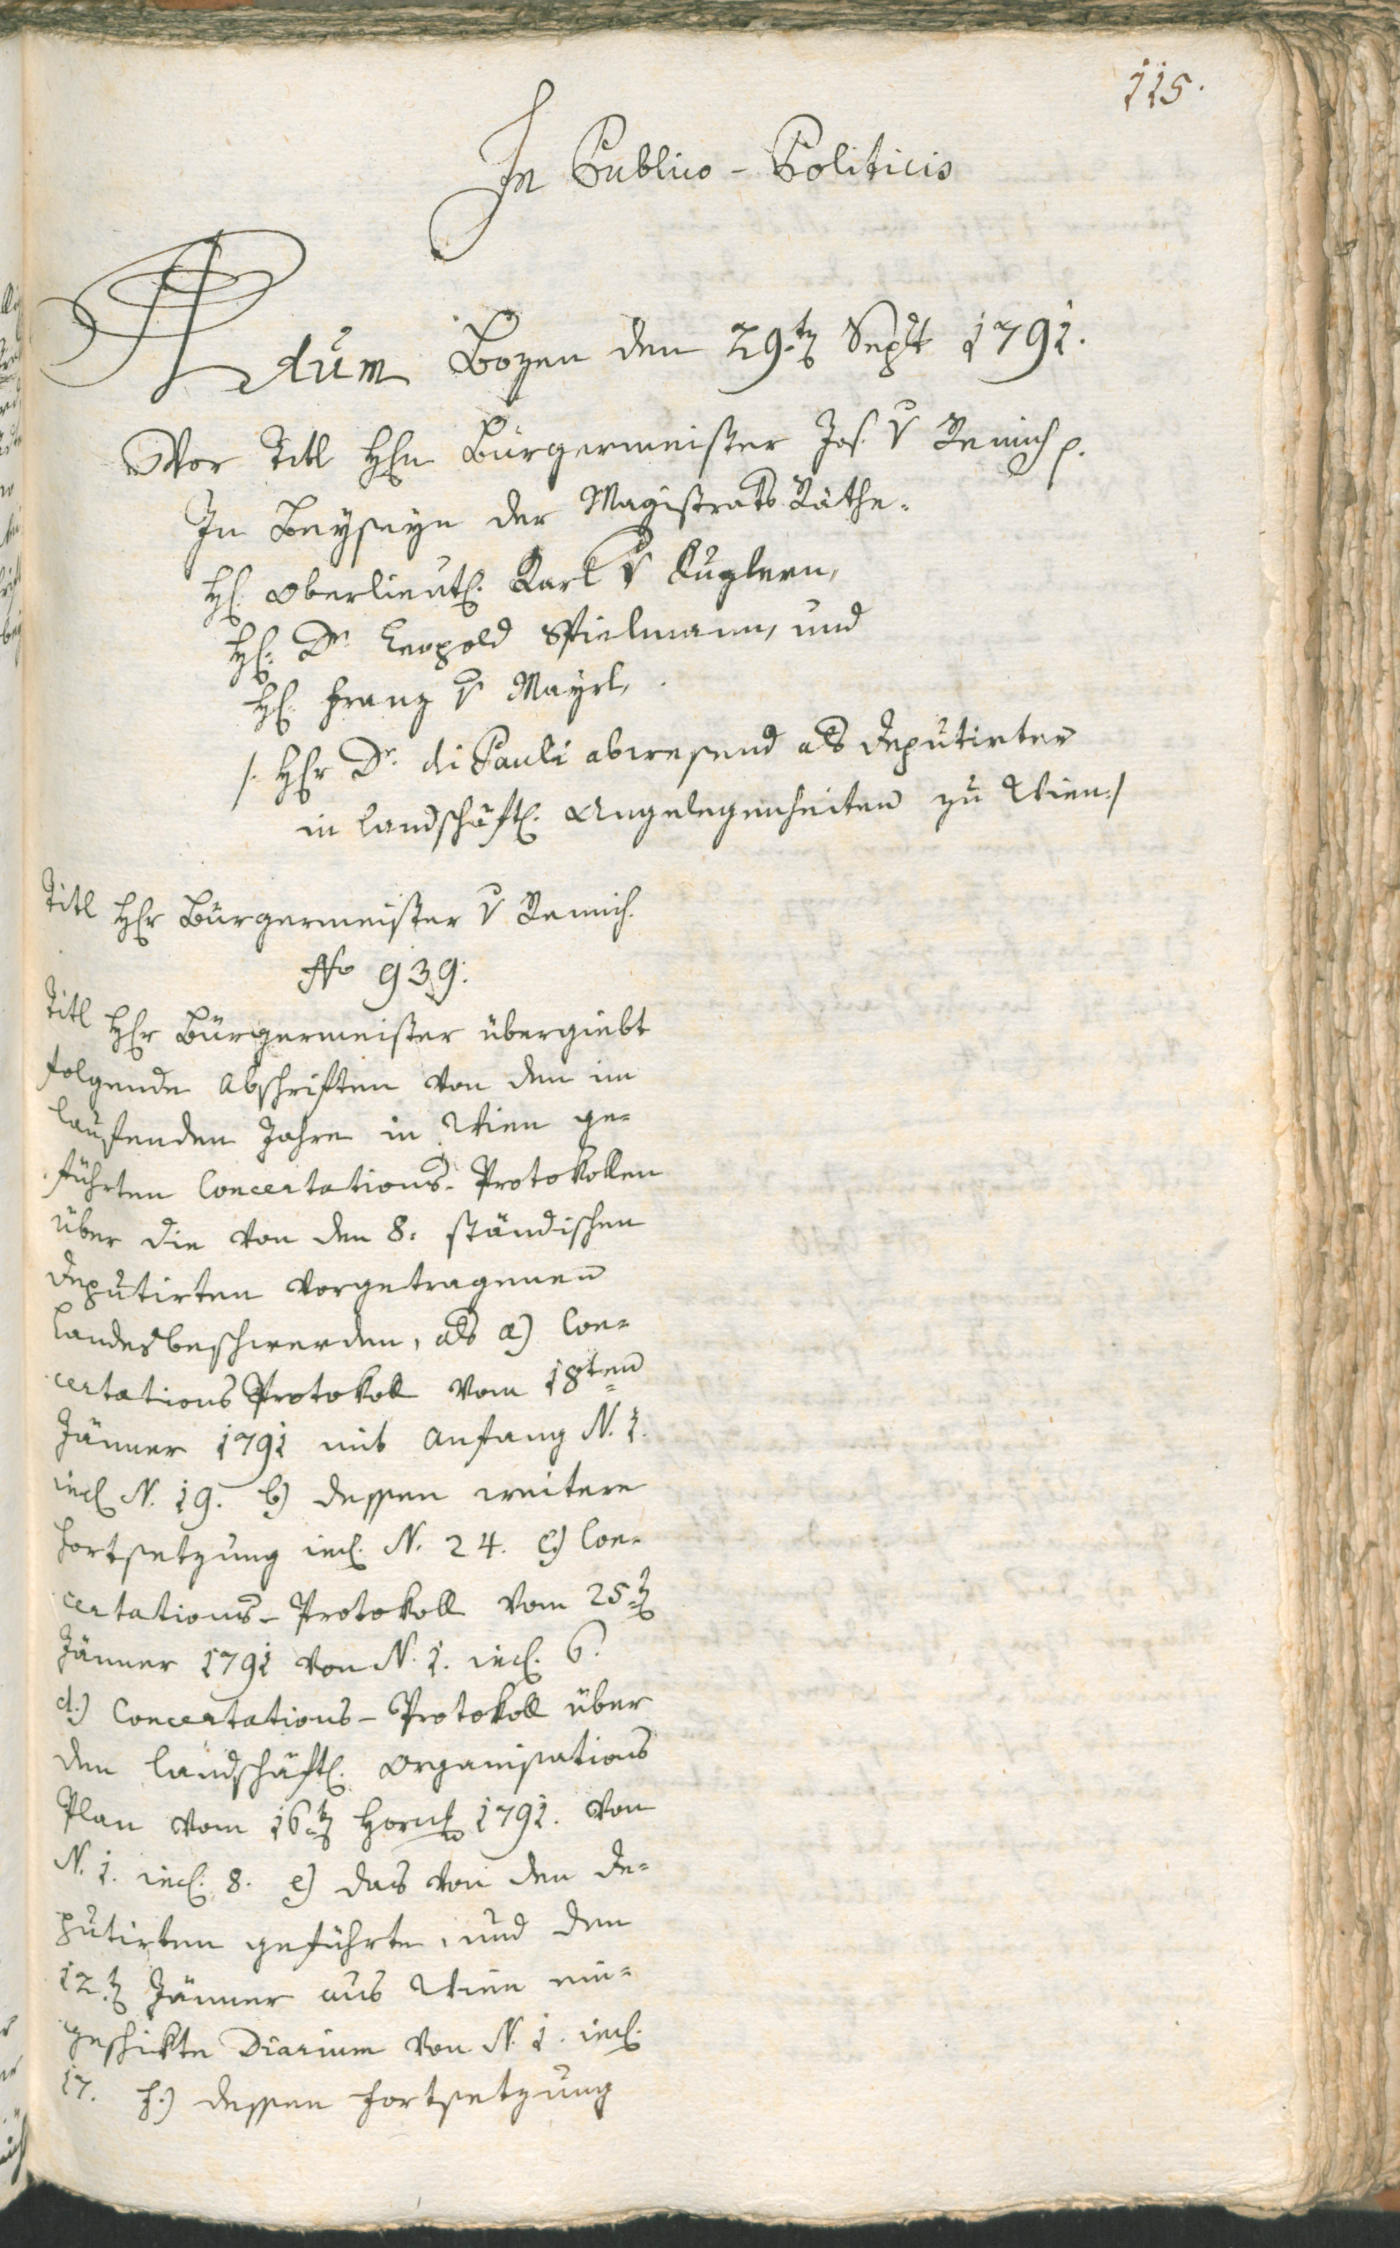 115.
In Publico-Politicis
Actum Bozen den 29.ten Sept 1791.
Vor Titl Hℓn Bürgermeister Jos. v Remich p.
In Beyseyn der Magistrats Räthe.
Hℓ. Oberlieutℓ. Karl v Kuglern,
Hℓ. Dr. Leopold Stielmann, und
Hℓ. Franz v Mayrl,
/. Hℓr Dr. di Pauli abwesend als Deputirter
in landschäftℓ. Angelegenheiten zu Wien./
Titl Hℓr Bürgermeister v Remich.
No 939.
Titl Hℓr Bürgermeister übergiebt
folgende Abschriften von den im
laufenden Jahre in Wien ge-
führten Concertations-Protokollen
über die von den 8. ständischen
Deputirten vorgetragenen
Landesbeschwerden, als a) Con-
certations Protokoll vom 18ten
Jänner 1791 mit Anfang N. 1.
incℓ N. 19. b) dessen weitere
Fortsetzung incℓ. N. 24. c.) Con-
certations-Protokoll vom 25.ten
Jänner 1791 von N. 1. incℓ. 6.
d.) Concertations-Protokoll über
den landschäftℓ. Organisations
Plan vom 16.ten Hornℓ 1791. von
N. 1. incℓ. 8. e) das von den De-
putirten geführte, und den
12.ten Jänner aus Wien ein-
geschikte Diarium von N. 1. incℓ.
17. f.) dessen Fortsetzung